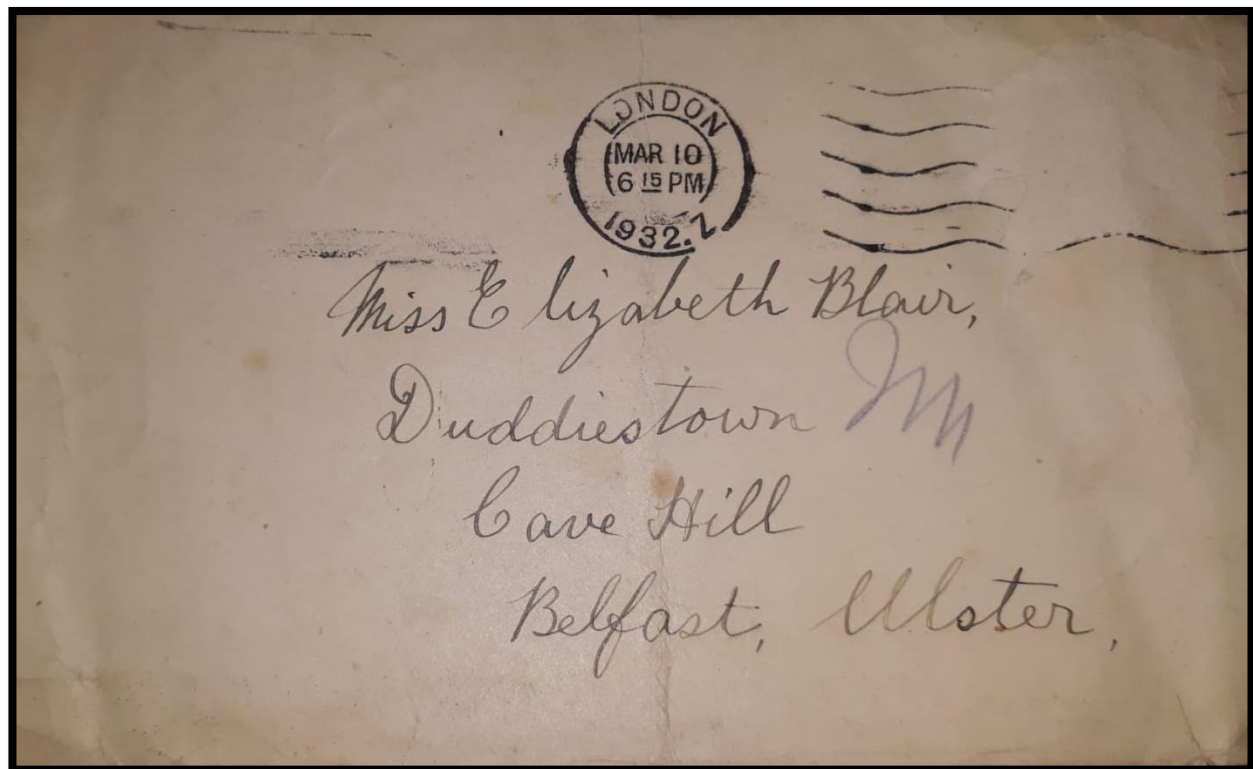 LONDON
MAR 10
6 15 PM
1932. Z
Miss Elizabeth Blair,
Duddiestown
Cave Hill
Belfast, Ulster,